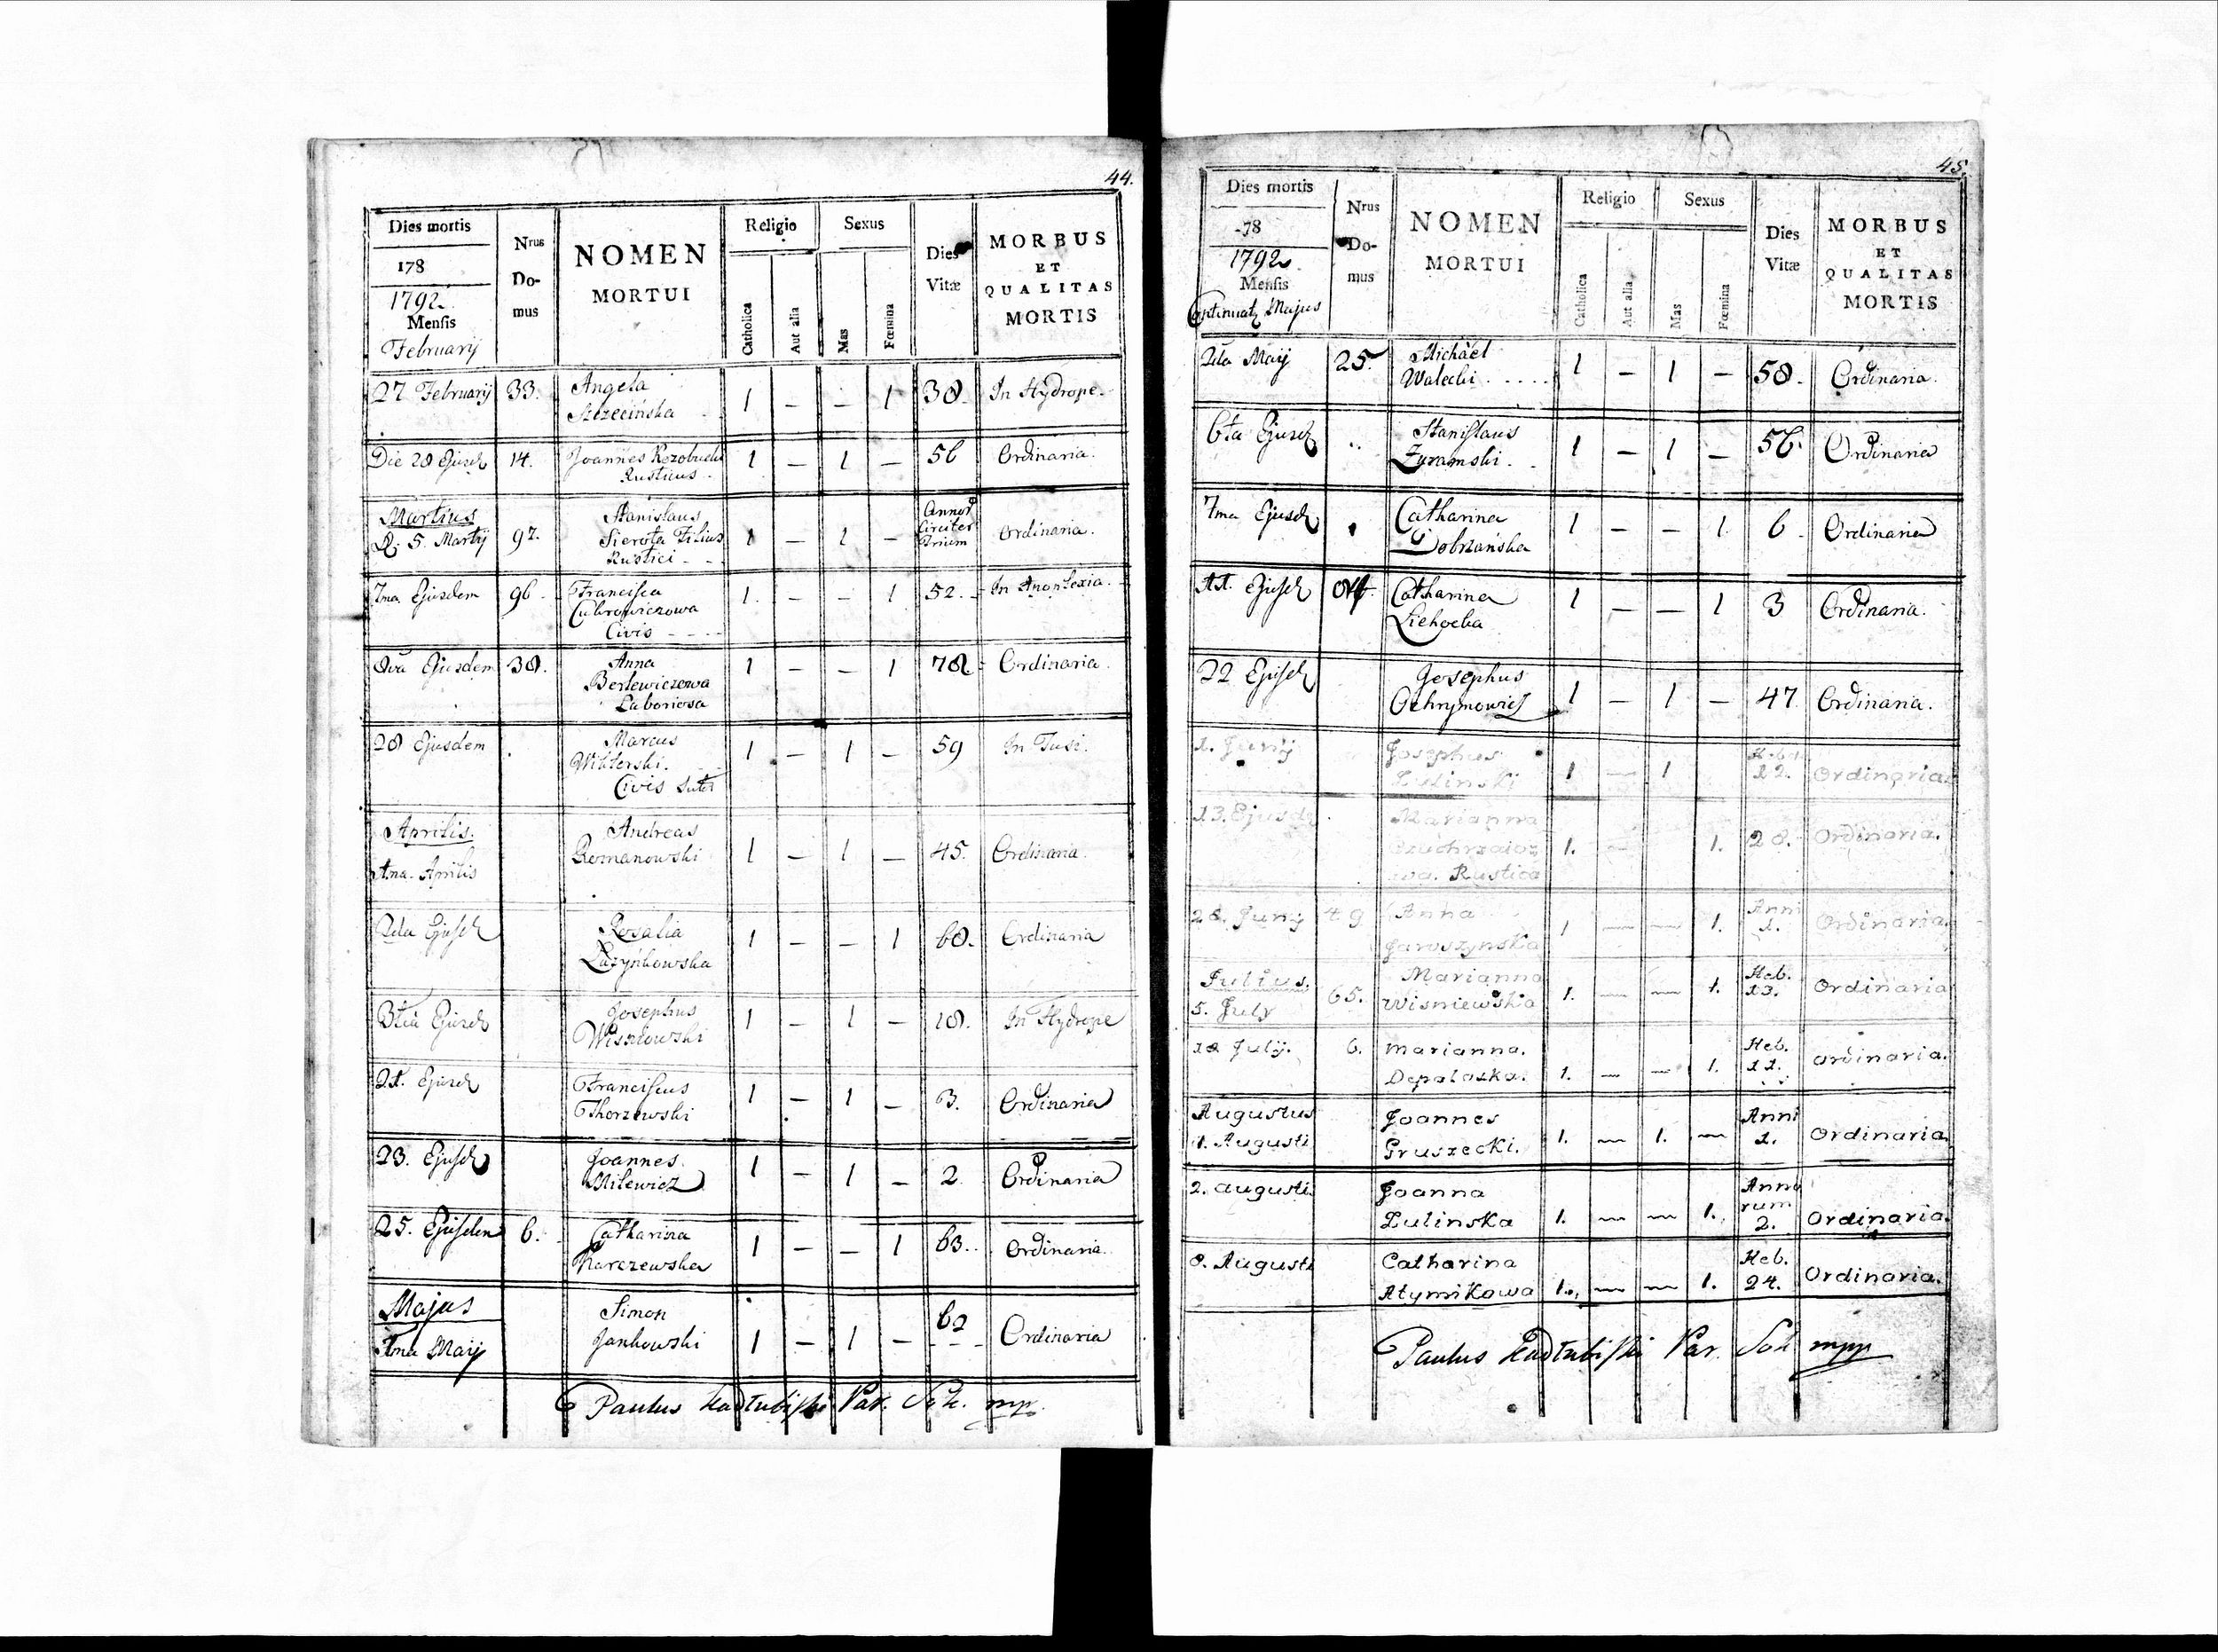 44.
Dies mortis
178
1792.
Mensis
Februarij
Nrus
Do-
mus
NOMEN
MORTUI
Religio
Catholica
Aut alia
Sexus
Mas
Fœmina
Dies
Vitæ
MORBUS
ET
QUALITAS
MORTIS
27 Februarij 33. Angela 1 – – 1 38. In Hydrope.
Szczecińska
Die 28 Ejusd 14. Joannes 1 – 1 – 56 Ordinaria.
Rusticus
Martius Stanislaus Annor
D. 5. Martij 97. Sierota Filius 1 – 1 – Circiter Ordinaria.
Rustici Trium
7ma Ejusdem 96. Francisca 1. – – 1 52. In Apoplexia.
Cubrowiczowa
Civis
8va Ejusdem 38. Anna 1 – – 1 78 Ordinaria.
Berlewiczowa
Laboriosa
28 Ejusdem Marcus 1 – 1 – 59 In Tusi.
Wikterski.
Civis
Aprilis. Andreas
Romanowski 1 – 1 – 45. Ordinaria.
1ma. Aprilis
2da Ejusd Rosalia 1 – – 1 60. Ordinaria
3tia Ejusd Josephus 1 – 1 – 18. In Hydrope
Wisłowski
21. Ejusd Franciscus 1 – 1 – 3. Ordinaria
23. Ejusd Joannes 1 – 1 – 2. Ordinaria
Milewicz
25. Ejusdem 6. Catharina 1 – – 1 63. Ordinaria.
Karczewska
Majus Simon 62
1ma Maij Jankowski 1 – 1 – Ordinaria
Paulus Kadłubiski Par. Soh. mp.
45.
Dies mortis
-78
1792.
Mensis
Continuat Majus
Nrus
Do-
mus
NOMEN
MORTUI
Religio
Catholica
Aut alia
Sexus
Mas
Fœmina
Dies
Vitæ
MORBUS
ET
QUALITAS
MORTIS
2da Maij 25. Michael 1 – 1 – 58. Ordinaria.
Walecki
6ta Ejusd Stanislaus 1 – 1 – 56. Ordinaria
Zuramski
7ma Ejusd Catharina 1 – – 1. 6. Ordinaria
Dobrzańska
11. Ejusd 84. Catharina 1 – – 1 3 Ordinaria.
Lichocka
22 Ejusd Josephus 1 – 1 – 47 Ordinaria.
Ochrymowicz
1. Junij Josephus Heb.
Zulinski 1 – 1 12. Ordinaria.
13. Ejusd Marianna
1. – 1. 28. Ordinaria.
Rustica
28. Junij 49 Anna Anni
Jaroszynska 1 – – 1. 1. Ordinaria.
Julius. Marianna Heb.
5. July 65. Wisniewska 1. – – 1. 13. Ordinaria
18 Julij. 6. Marianna. Heb.
1. – – 1. 11. Ordinaria.
Augustus Joannes Anni
1. Augusti Gruszecki. 1. – 1. – 1. Ordinaria
2. Augusti Joanna Anno
rum
Zulinska 1. – – 1. 2. Ordinaria.
8. Augusti Catharina Heb.
Atymikowa 1. – – 1. 24. Ordinaria.
Paulus Kadłubiski Par. Soh mpp